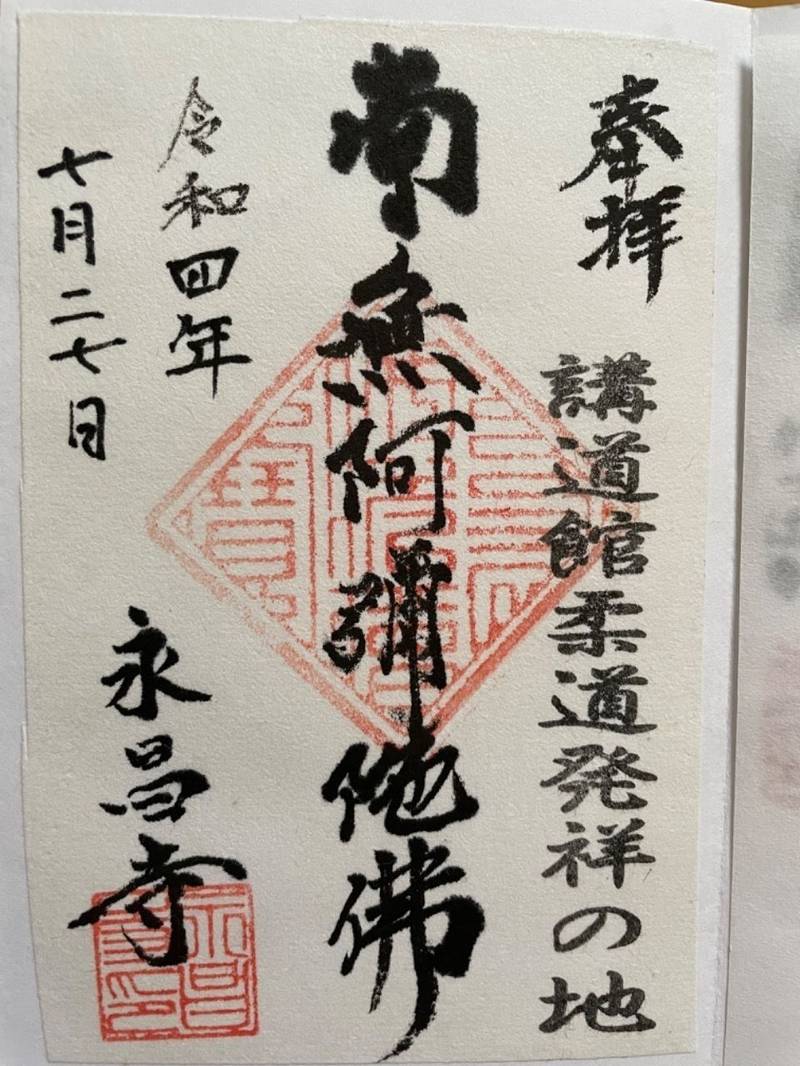 奉拝
講道館柔道発祥の地
南無阿彌陀佛
令和四年
七月二七日
永昌寺